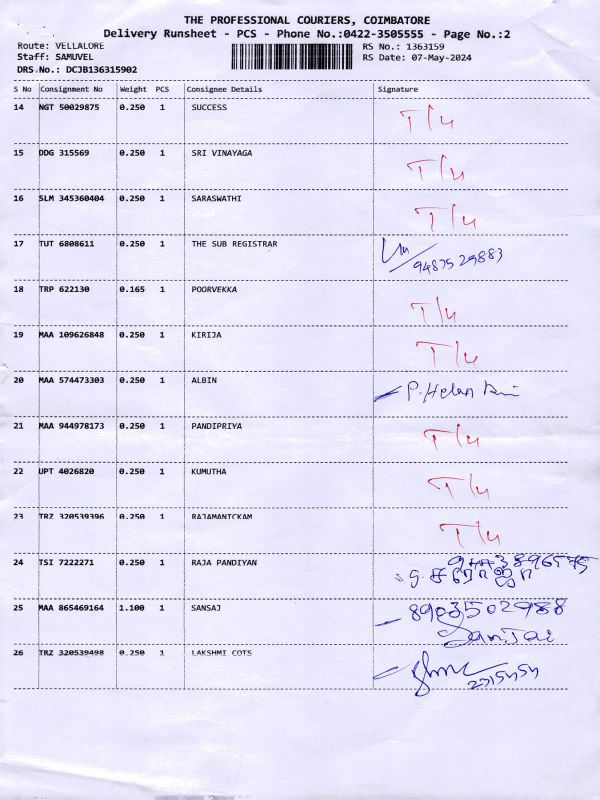 THE PROFESSIONAL COURIERS, COIMBATORE
Delivery Runsheet - PCS - Phone No.:0422-3505555 - Page No.:2
Route: VELLALORE RS No.: 1363159
Staff: SAMUVEL RS Date: 07-May-2024
DRS.No.: DCJB136315902
S No Consignment No Weight PCS Consignee Details Signature
14 NGT 50029875 0.250 1 SUCCESS T/4
15 DDG 315569 0.250 1 SRI VINAYAGA T/4
16 SLM 345360404 0.250 1 SARASWATHI T/4
17 TUT 6808611 0.250 1 THE SUB REGISTRAR
9487529883
18 TRP 622130 0.165 1 POORVEKKA T/4
19 MAA 109626848 0.250 1 KIRIJA T/4
20 MAA 574473303 0.250 1 ALBIN P. Helan
21 MAA 944978173 0.250 1 PANDIPRIYA T/4
22 UPT 4026820 0.250 1 KUMUTHA T/4
23 TRZ 320539396 0.250 1 RAJAMANICKAM T/4
24 TSI 7222271 0.250 1 RAJA PANDIYAN
25 MAA 865469164 1.100 1 SANSAJ 8903502988
Sanjai
26 TRZ 320539498 0.250 1 LAKSHMI COTS